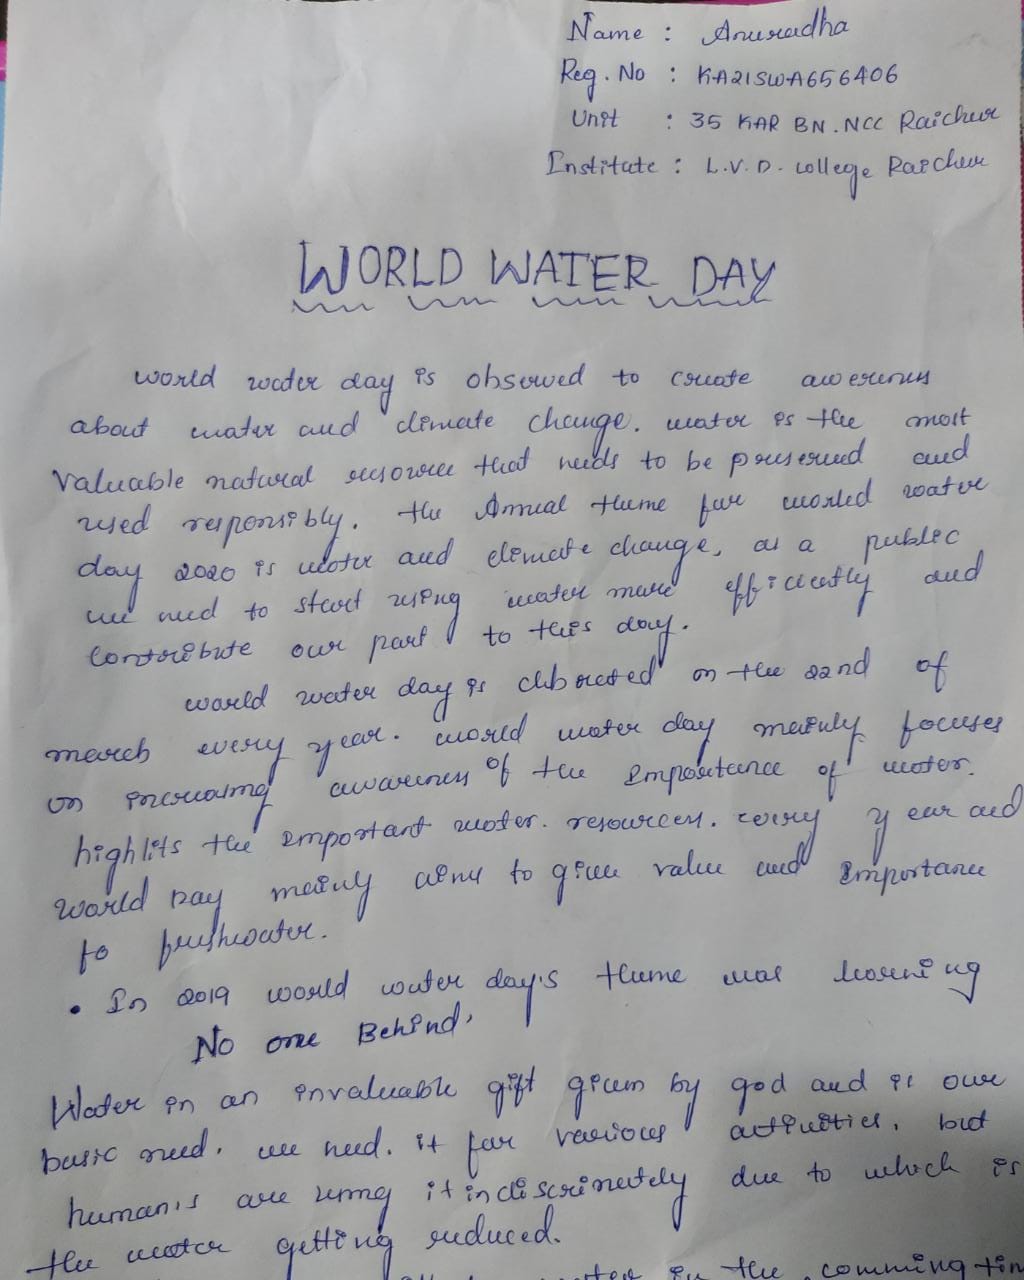 Name : Anuradha
Reg. No : KA21SWA656406
Unit : 35 KAR BN. NCC Raichur
Institute : L.V.D. college Raichur
WORLD WATER DAY
world water day is observed to create awerenes
about water and climate change. water is the most
valuable natural resource that needs to be preserved and
used responsibly. the Annual theme for world water
day 2020 is water and climate change, as a public
we need to start using water more efficiently and
contribute our part to this day.
world water day is clibreted on the 22nd of
march every year. world water day mainly focuses
on increasing awareness of the importance of water.
highlits the important water. resources. every year and
world Day mainly aims to give value and importance
to freshwater.
• In 2019 world water day's theme was leaving
No one Behind.
Water in an invaluable gift given by god and is our
basic need. we need. it for various activities, but
humans are using it indiscriminately due to which is
the water getting reduced.
in the comming